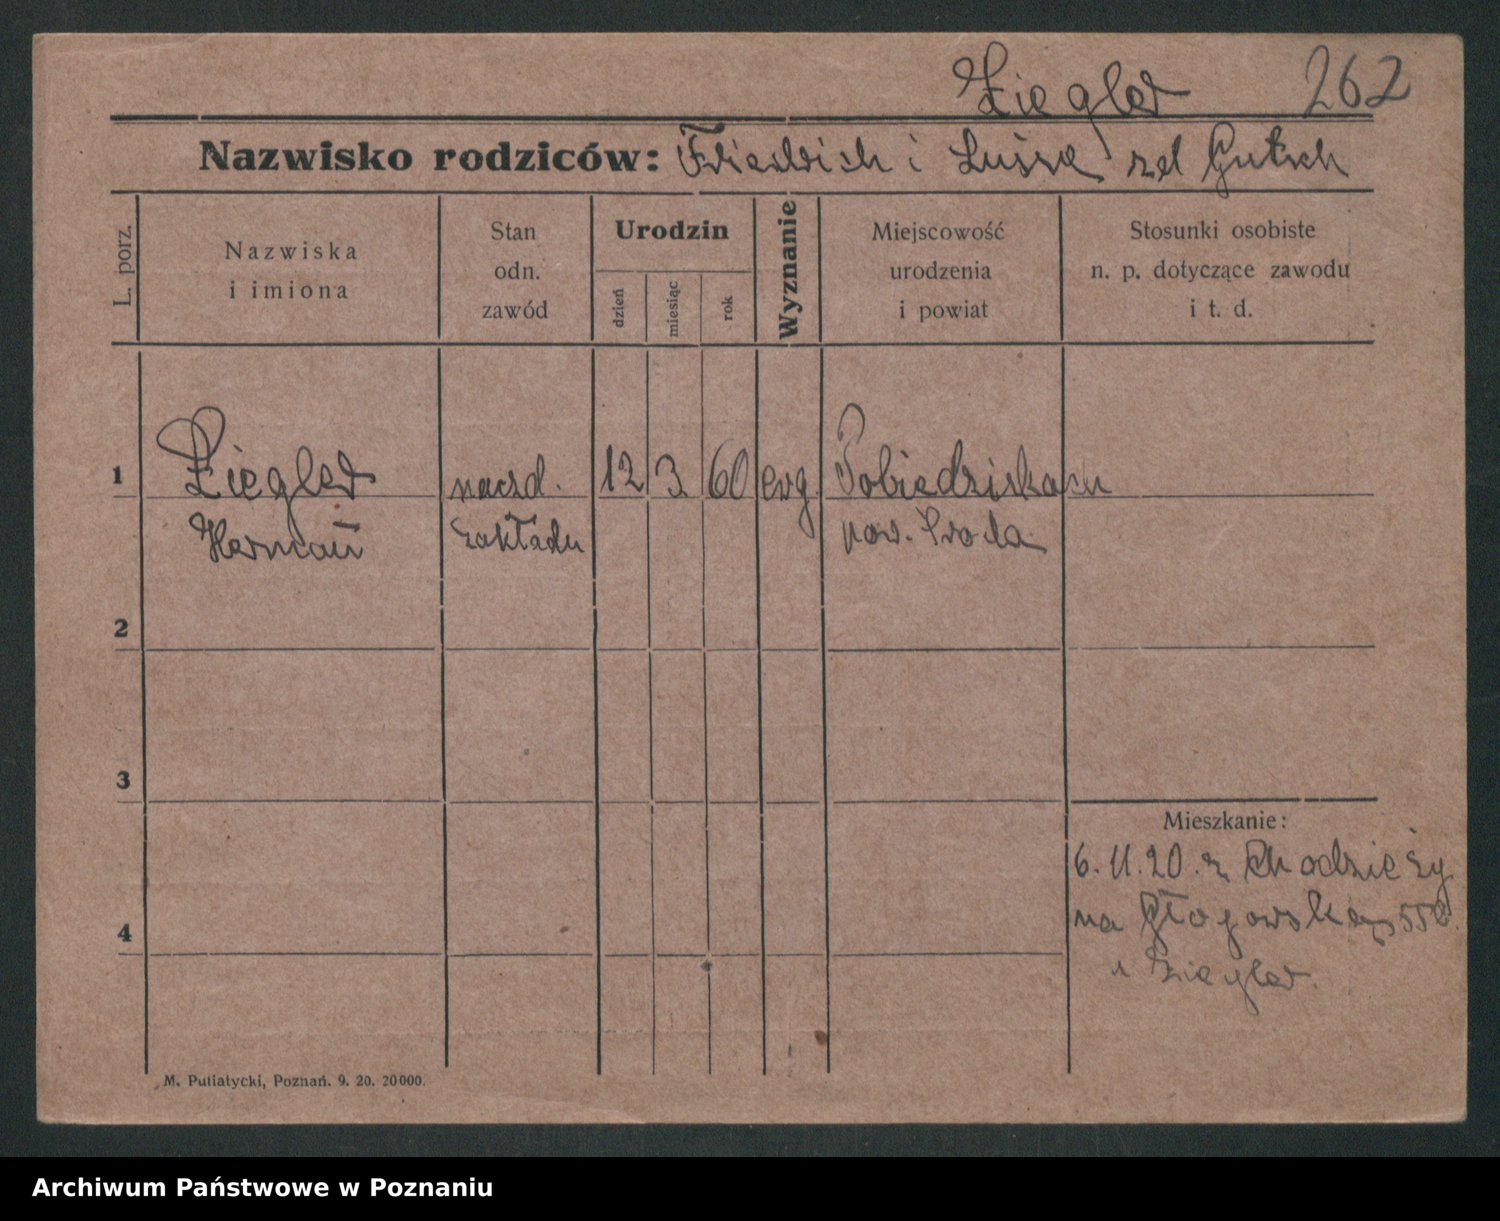 Ziegler 262
Nazwisko rodziców: Friedrich i Luise zd Gutsch
L. porz.
Nazwiska
i imiona
Stan
odn.
zawód
Urodzin
dzień
miesiąc
rok
Wyznanie
Miejscowość
urodzenia
i powiat
Stosunki osobiste
n. p. dotyczące zawodu
i t. d.
1 Ziegler naczd. 12 3. 60 ewg. Pobiedziskach
Hermann zakładu pow. Środa
2
3
Mieszkanie:
6. 11. 20. z Chodzieży
na Głogowską 55b.
4
u Ziegler.
M. Putiatycki, Poznań. 9. 20. 20000.
Archiwum Państwowe w Poznaniu